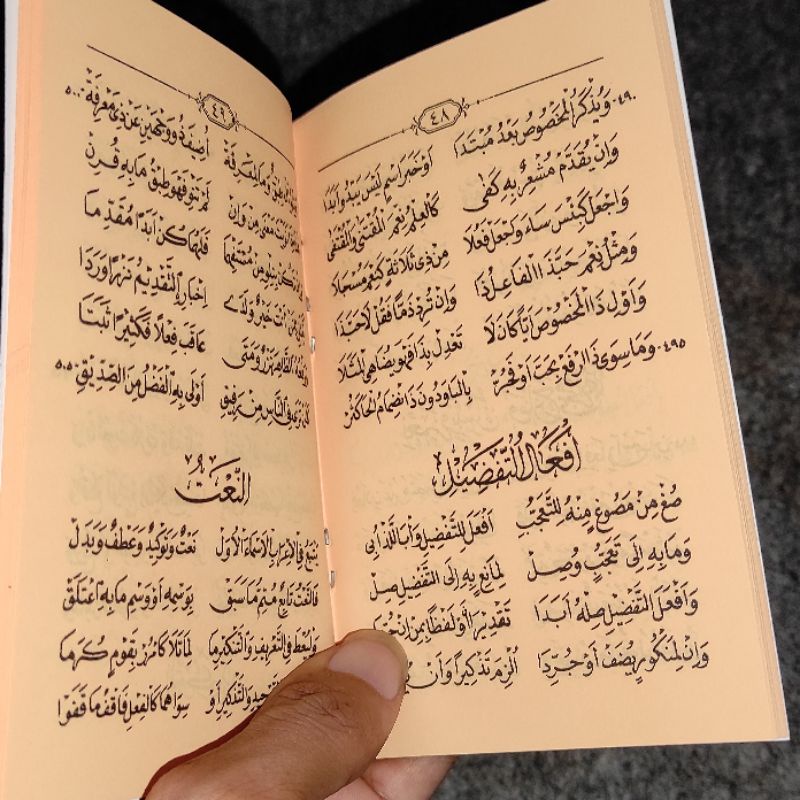 ٤٨
٤٩٠ وَيُذْكَرُ الْمَخْصُوصُ بَعْدُ مُبْتَدَا أَوْ خَبَرَ اسْمٍ لَيْسَ يَبْدُو أَبَدَا
وَإِنْ يُقَدَّمْ مُشْعِرٌ بِهِ كَفَى كَالْعِلْمُ نِعْمَ الْمُقْتَنَى وَالْمُقْتَفَى
وَاجْعَلْ كَبِئْسَ سَاءَ وَاجْعَلْ فَعُلَا مِنْ ذِي ثَلَاثَةٍ كَنِعْمَ مُسْجَلَا
وَمِثْلُ نِعْمَ حَبَّذَا الْفَاعِلُ ذَا وَإِنْ تُرِدْ ذَمًّا فَقُلْ لَا حَبَّذَا
وَأَوْلِ ذَا الْمَخْصُوصَ أَيًّا كَانَ لَا تَعْدِلْ بِذَا فَهُوَ يُضَاهِي الْمَثَلَا
٤٩٥ وَمَا سِوَى ذَا ارْفَعْ بِحَبَّ أَوْ فَجُرْ بِالْبَا وَدُونَ ذَا انْضِمَامُ الْحَا كَثُرْ
أَفْعَالُ التَّفْضِيلِ
صُغْ مِنْ مَصُوغٍ مِنْهُ لِلتَّعَجُّبِ أَفْعَلَ لِلتَّفْضِيلِ وَأْبَ اللَّذْ أُبِي
وَمَا بِهِ إِلَى تَعَجُّبٍ وُصِلْ لِمَانِعٍ بِهِ إِلَى التَّفْضِيلِ صِلْ
وَأَفْعَلَ التَّفْضِيلِ صِلْهُ أَبَدَا تَقْدِيرًا أَوْ لَفْظًا بِمِنْ إِنْ
وَإِنْ لِمَنْكُورٍ يُضَفْ أَوْ جُرِّدَا أُلْزِمَ تَذْكِيرًا وَأَنْ
٤٩
وَمَا لِمَعْرِفَةْ أُضِيفَ ذُو وَجْهَيْنِ عَنْ ذِي مَعْرِفَةْ ٥٠٠
مَعْنَى مِنْ وَإِنْ لَمْ تَنْوِ فَهْوَ طِبْقُ مَا بِهِ قُرِنْ
بِتِلْوِ مِنْ مُسْتَفْهِمَا فَلَهُمَا كُنْ أَبَدًا مُقَدِّمَا
أَنْتَ خَيْرٌ وَلَدَى إِخْبَارٍ التَّقْدِيمُ نَزْرًا وَرَدَا
الظَّاهِرَ نَزْرٌ وَمَتَى عَاقَبَ فِعْلًا فَكَثِيرًا ثَبَتَا
فِي النَّاسِ مِنْ رَفِيقِ أَوْلَى بِهِ الْفَضْلُ مِنَ الصِّدِّيقِ ٥٠٥
النَّعْتُ
يَتْبَعُ فِي الْإِعْرَابِ الْأَسْمَاءَ الْأُوَلْ نَعْتٌ وَتَوْكِيدٌ وَعَطْفٌ وَبَدَلْ
فَالنَّعْتُ تَابِعٌ مُتِمٌّ مَا سَبَقْ بِوَسْمِهِ أَوْ وَسْمِ مَا بِهِ اعْتَلَقْ
وَلْيُعْطَ فِي التَّعْرِيفِ وَالتَّنْكِيرِ مَا لِمَا تَلَا كَامْرُرْ بِقَوْمٍ كُرَمَا
وَالتَّذْكِيرِ أَوْ سِوَاهُمَا كَالْفِعْلِ فَاقْفُ مَا قَفَوْا